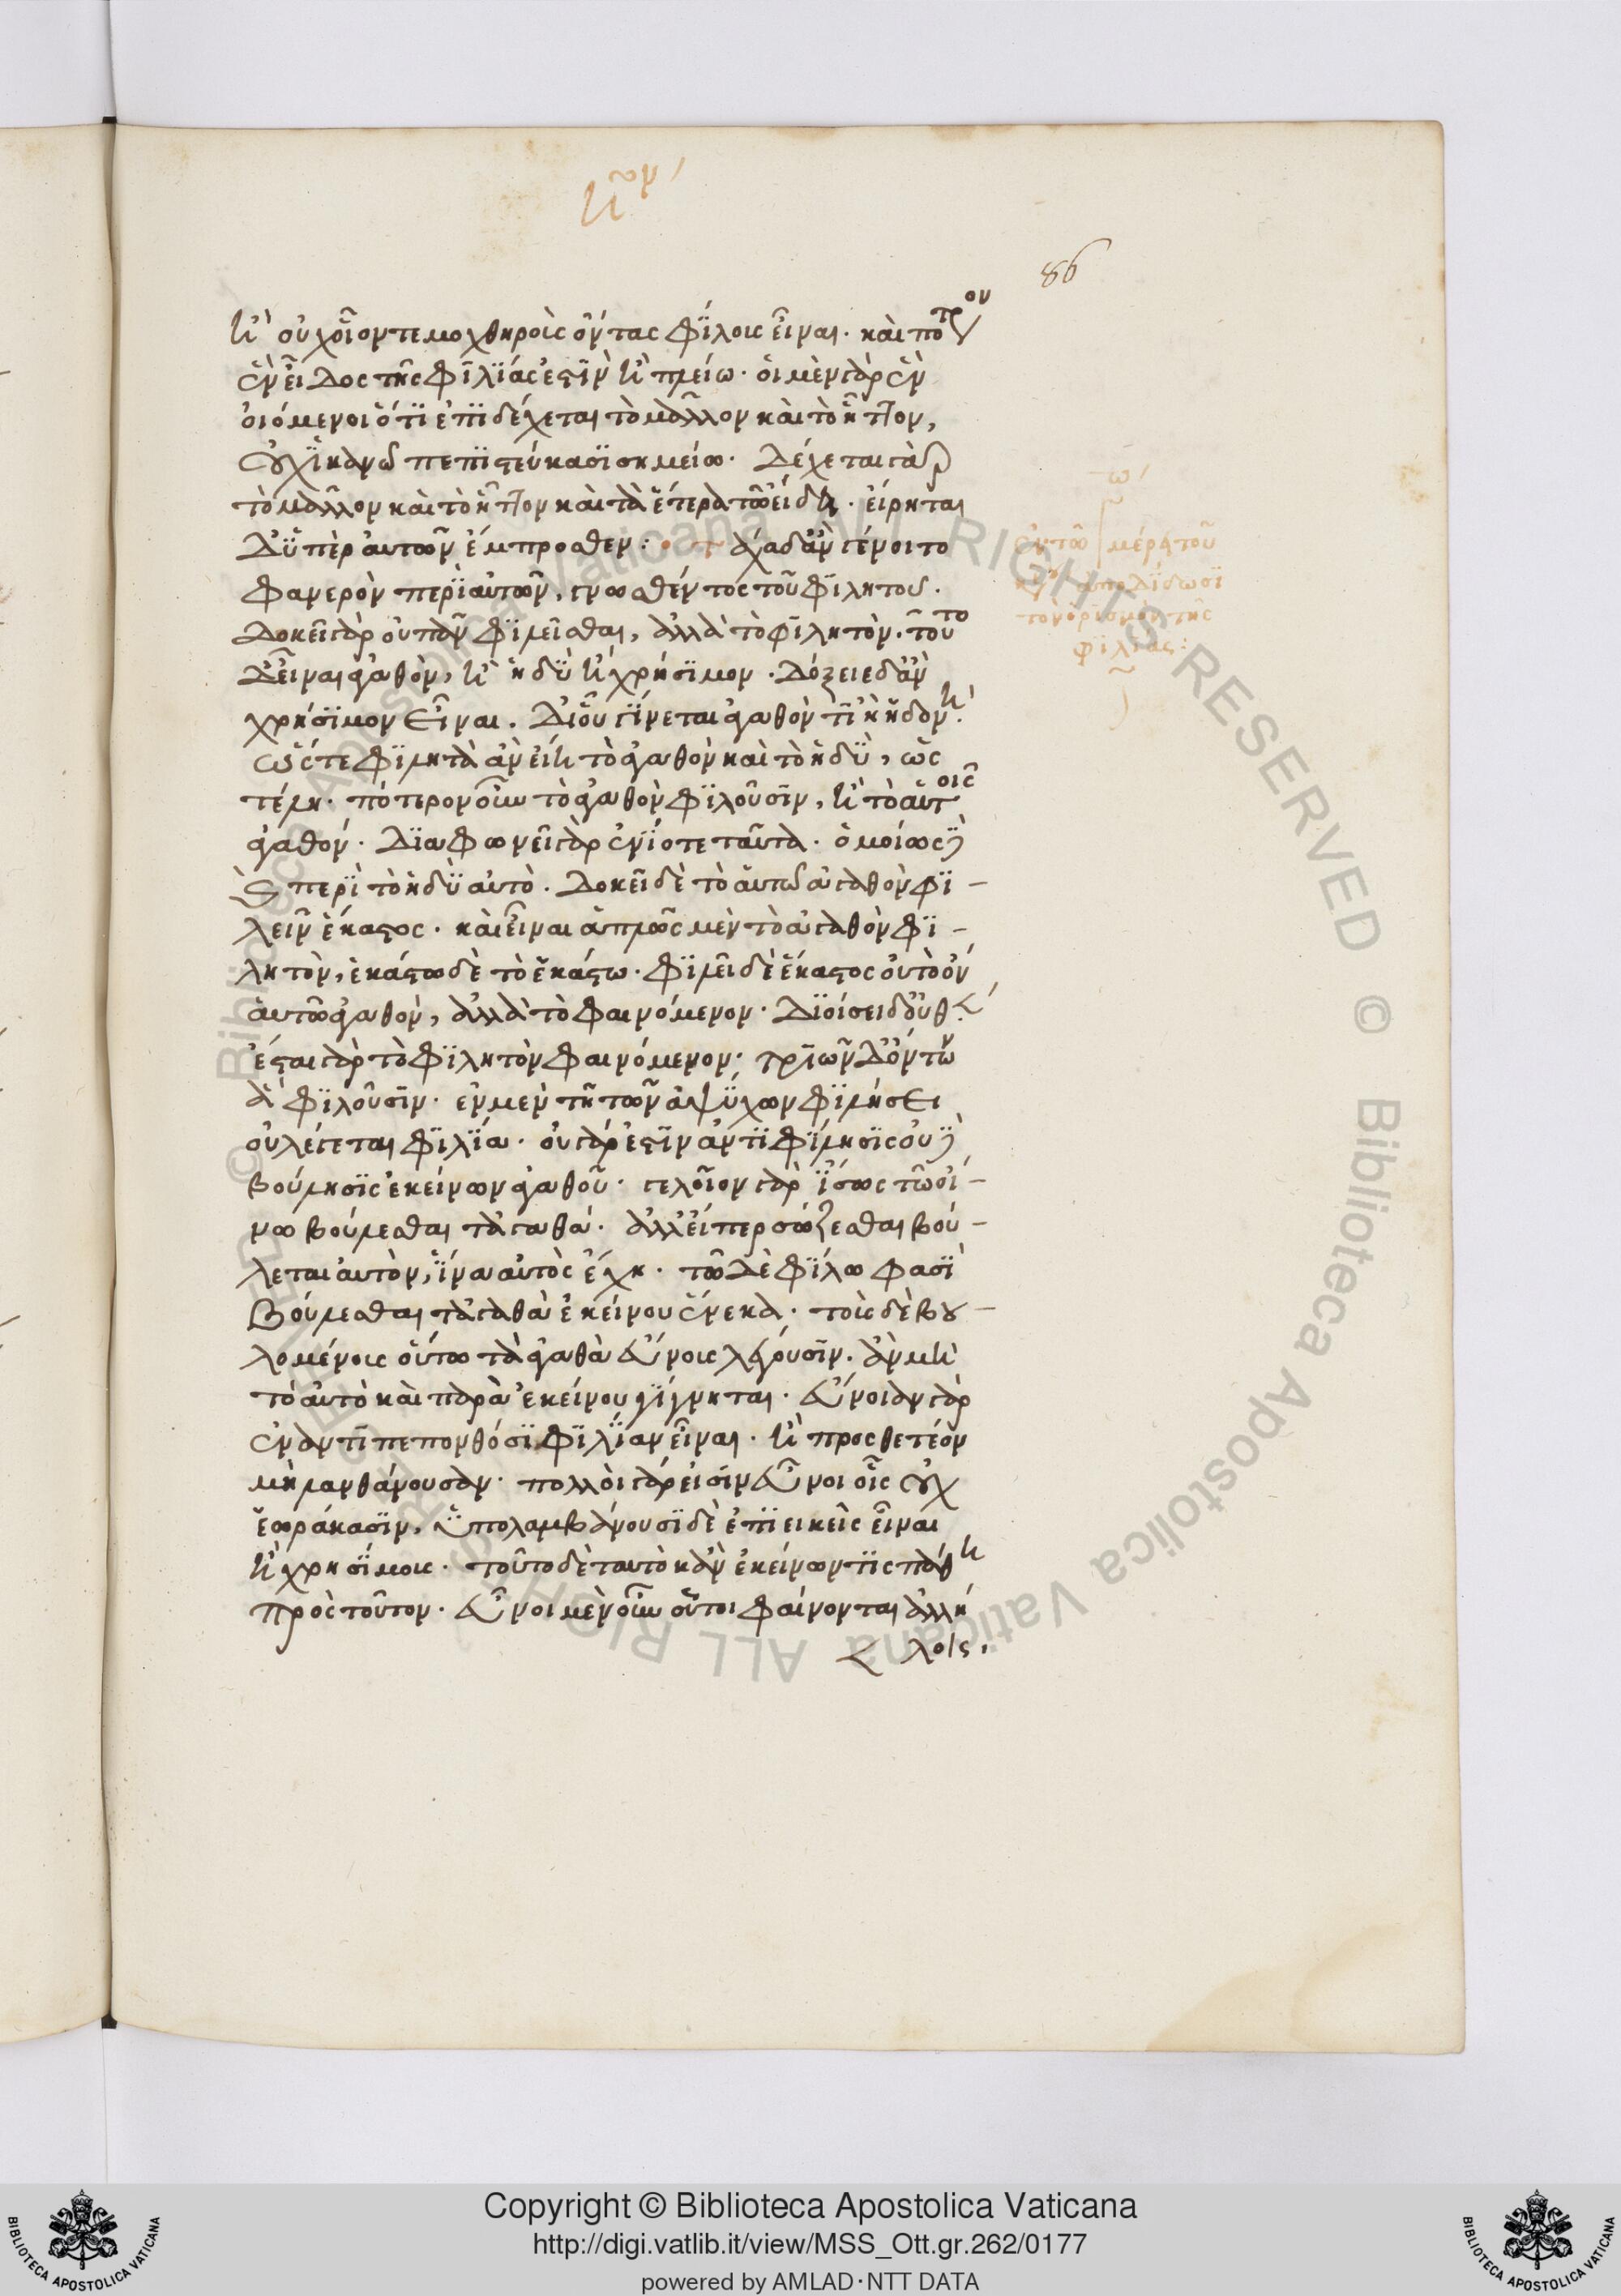 86
ἢ οὐχ οἷόν τε μοχθηροὺς ὄντας φίλους εἶναι. καὶ πότερον
ἓν εἶδος τῆς φιλίας ἐστὶν ἢ πλείω. οἱ μὲν γὰρ ἓν
οἰόμενοι ὅτι ἐπιδέχεται τὸ μᾶλλον καὶ τὸ ἧττον,
οὐχ ἱκανῷ πεπιστεύκασι σημείῳ. δέχεται γὰρ
τὸ μᾶλλον καὶ τὸ ἧττον καὶ τὰ ἕτερα τῷ εἴδη. εἴρηται
δ' ὑπὲρ αὐτῶν ἔμπροσθεν: τάχα δ' ἂν γένοιτο
φανερὸν περὶ αὐτῶν, γνωσθέντος τοῦ φιλητοῦ.
δοκεῖ γὰρ οὐ πᾶν φιλεῖσθαι, ἀλλὰ τὸ φιλητόν. τοῦτο
δ' εἶναι ἀγαθὸν, ἢ ἡδὺ ἢ χρήσιμον. δόξειε δ' ἂν
χρήσιμον εἶναι. δι' οὗ γίνεται ἀγαθόν τι ἢ ἡδονή.
ὥστε φιλητὰ ἂν εἴη τὸ ἀγαθὸν καὶ τὸ ἡδὺ, ὡς
τέλη. πότερον οὖν τὸ ἀγαθὸν φιλοῦσιν, ἢ τὸ αὑτοῖς
ἀγαθόν. διαφωνεῖ γὰρ ἐνίοτε ταῦτα. ὁμοίως δὲ
καὶ περὶ τὸ ἡδὺ αὐτό. δοκεῖ δὲ τὸ αὑτῷ ἀγαθὸν φι-
λεῖν ἕκαστος. καὶ εἶναι ἁπλῶς μὲν τὸ ἀγαθὸν φι-
λητὸν, ἑκάστῳ δὲ τὸ ἑκάστῳ. φιλεῖ δὲ ἕκαστος οὐ τὸ ὂν
αὑτῷ ἀγαθὸν, ἀλλὰ τὸ φαινόμενον. διοίσει δ' οὐθέν.
ἔσται γὰρ τὸ φιλητὸν φαινόμενον. τριῶν δ' ὄντων
δι' ἃ φιλοῦσιν. ἐν μὲν τῇ τῶν ἀψύχων φιλήσει
οὐ λέγεται φιλία. οὐ γάρ ἐστιν ἀντιφίλησις οὐδὲ
βούλησις ἐκείνων ἀγαθοῦ. γελοῖον γὰρ ἴσως τῷ οἴ-
νῳ βούλεσθαι τἀγαθά. ἀλλ' εἴπερ σώζεσθαι βού-
λεται αὐτὸν, ἵνα αὐτὸς ἔχῃ. τῷ δὲ φίλῳ φασὶ
βούλεσθαι τἀγαθὰ ἐκείνου ἕνεκα. τοὺς δὲ βου-
λομένους οὕτω τὰ ἀγαθὰ εὔνους λέγουσιν. ἂν μὴ
τὸ αὐτὸ καὶ παρὰ ἐκείνου γίγνηται. εὔνοιαν γὰρ
ἐν ἀντιπεπονθόσι φιλίαν εἶναι. ἢ προσθετέον
μὴ λανθάνουσαν. πολλοὶ γὰρ εἰσὶν εὖνοι οἷς οὐχ
ἑωράκασιν, ὑπολαμβάνουσι δὲ ἐπιεικεῖς εἶναι
ἢ χρησίμους. τοῦτο δὲ ταυτὸ κἂν ἐκείνων τις πάθῃ
πρὸς τοῦτον. εὖνοι μὲν οὖν οὗτοι φαίνονται ἀλλή
λοις.
τὸν ὁρισμὸν τῆς
φιλίας:
Copyright © Biblioteca Apostolica Vaticana
http://digi.vatlib.it/view/MSS_Ott.gr.262/0177
powered by AMLAD·NTT DATA
BIBLIOTECA APOSTOLICA VATICANA
BIBLIOTECA APOSTOLICA VATICANA
© Biblioteca Apostolica Vaticana ALL RIGHTS RESERVED © Biblioteca Apostolica Vaticana ALL RIGHTS RESERVED